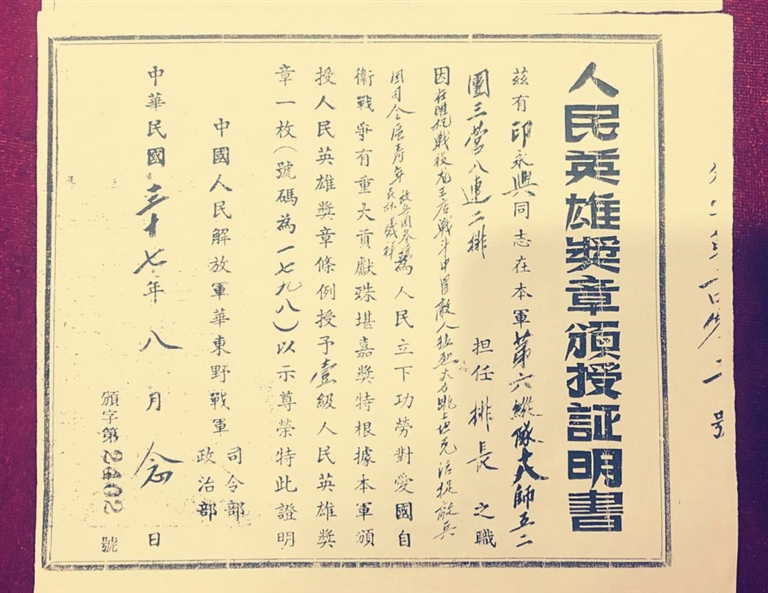 人民英雄獎章頒授証明書
茲有印永興同志在本軍第六縱隊十八師五二
團三营八連二排 担任排長之職
因在睢杞戰役龙王店戰斗中冒敵人猛烈火力跳上坦克活捉敵兵
团司令区寿年 為人民立下功勞對愛國自
衛戰爭有重大貢獻殊堪嘉獎特根據本軍頒
授人民英雄獎章條例授予壹級人民英雄獎
章一枚(號碼為一七九八)以示尊榮特此證明
中國人民解放軍華東野戰軍 司令部
政治部
中華民國三十七年八月念日
頒字第2402號
号